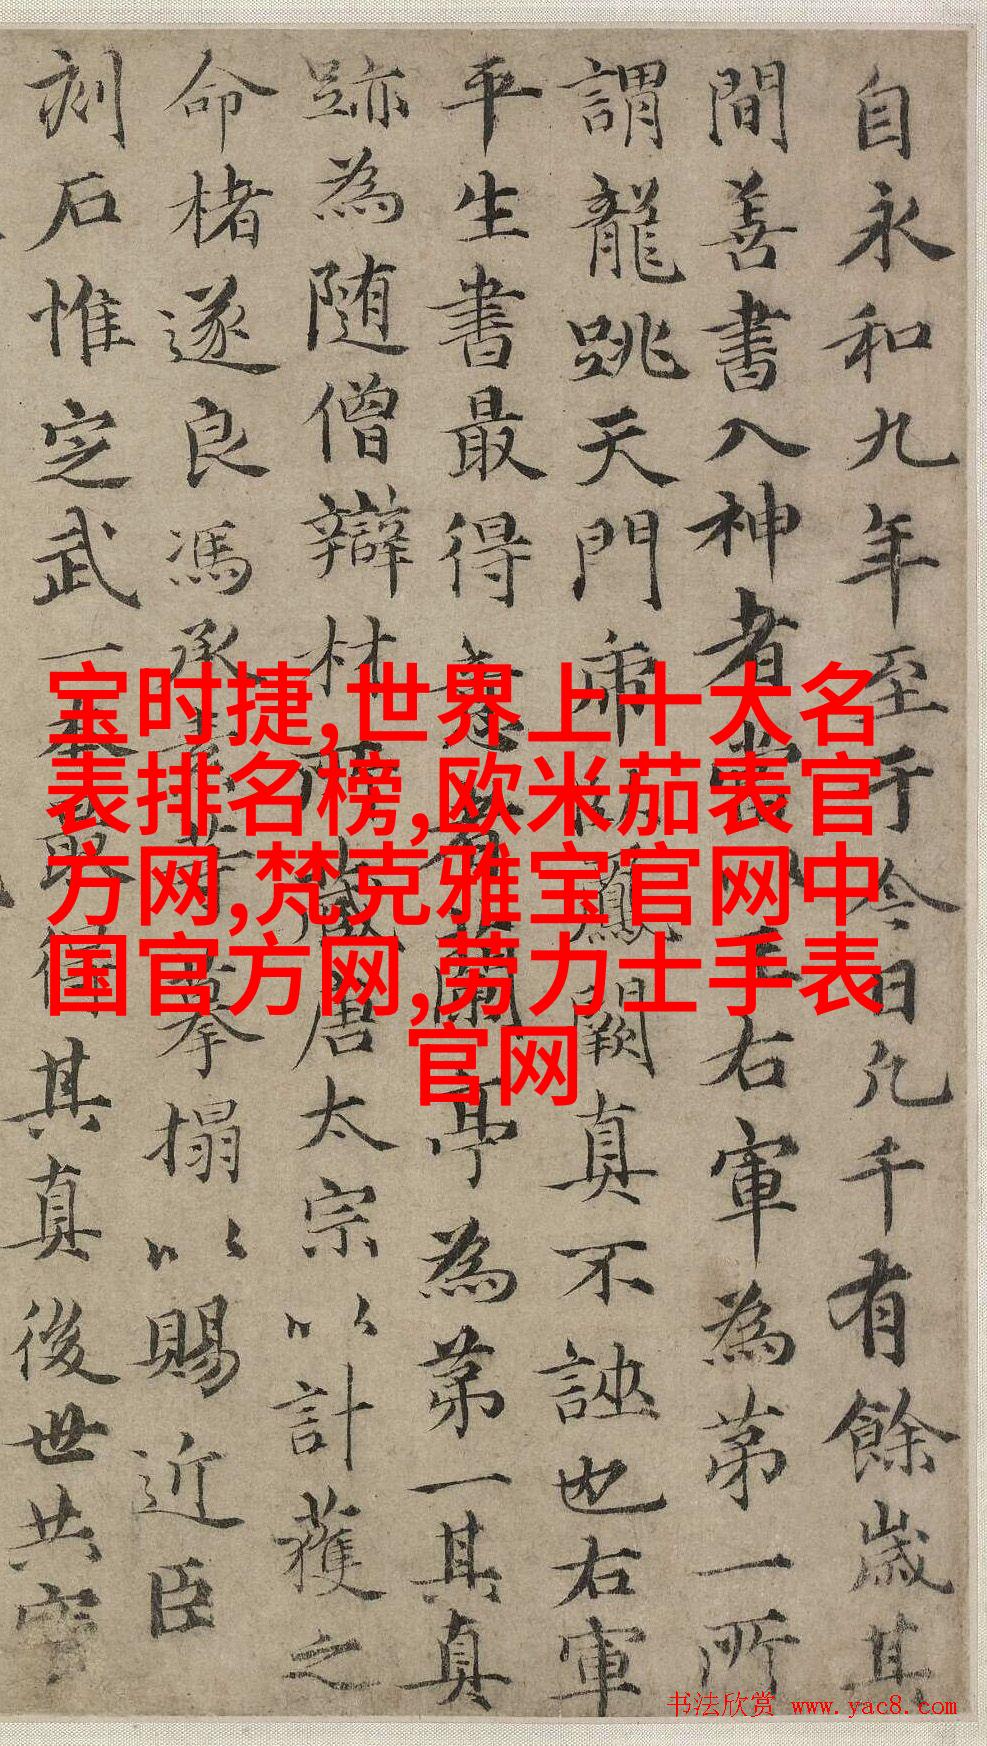 自永和九年至于今日凡千有餘歲其
間善書入神者當以王右軍為第一所
謂龍跳天門虎臥鳳闕真不誣也右軍
平生書最得意者蘭亭為第一其真
跡為随僧辯材所藏唐太宗以計獲之
命楮遂良馮承素等摹搨以賜近臣
刻石惟定武一本最得其真後世共寳
宝时捷,世界上十大名
表排名榜,欧米茄表官
方网,梵克雅宝官网中
国官方网,劳力士手表
官网
书法欣赏 www.yac8.com